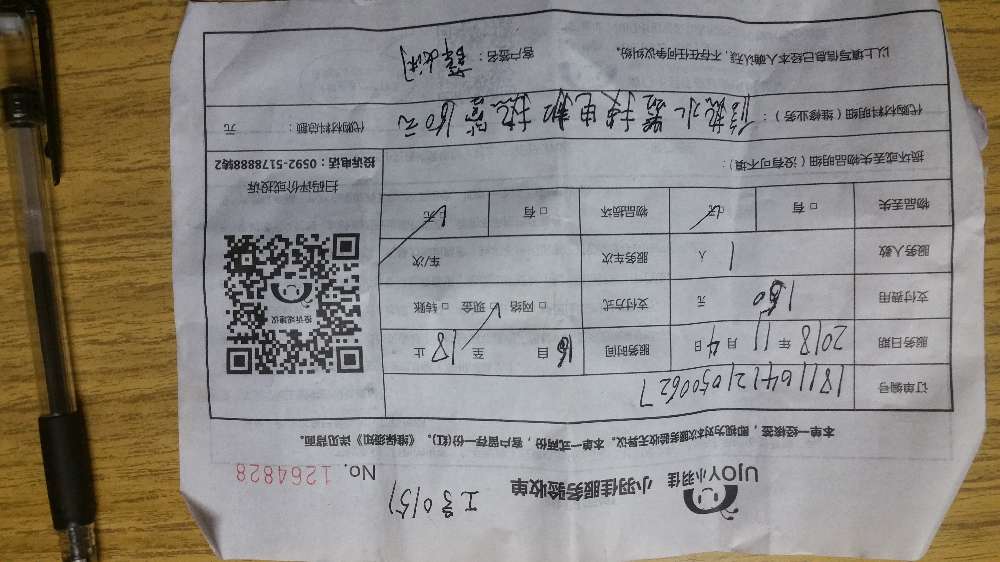 UJOY小羽佳 小羽佳服务验收单 No. 1264828
工号0151
本单一经核签，即视为对本次服务验收无异议。本单一式两份，客户留存一份(红)。《维保须知》详见背面。
订单编号
服务日期 2018年11月4日 服务时间 16自 至 18止
支付费用 160元 支付方式 □网络 现金 □转账
服务人数 1人 服务车次 车/次
物品丢失 □有 无 物品损坏 □有 无
投诉或建议
扫码评价或投诉
投诉电话：0592-5178888转2
损坏或丢失物品明细（没有可不填）：
代购材料明细（维修业务）：修热水器 换电和 160元
代购材料总额： 元
以上填写信息已经本人确认无误，不存在任何争议纠纷。 客户签名：